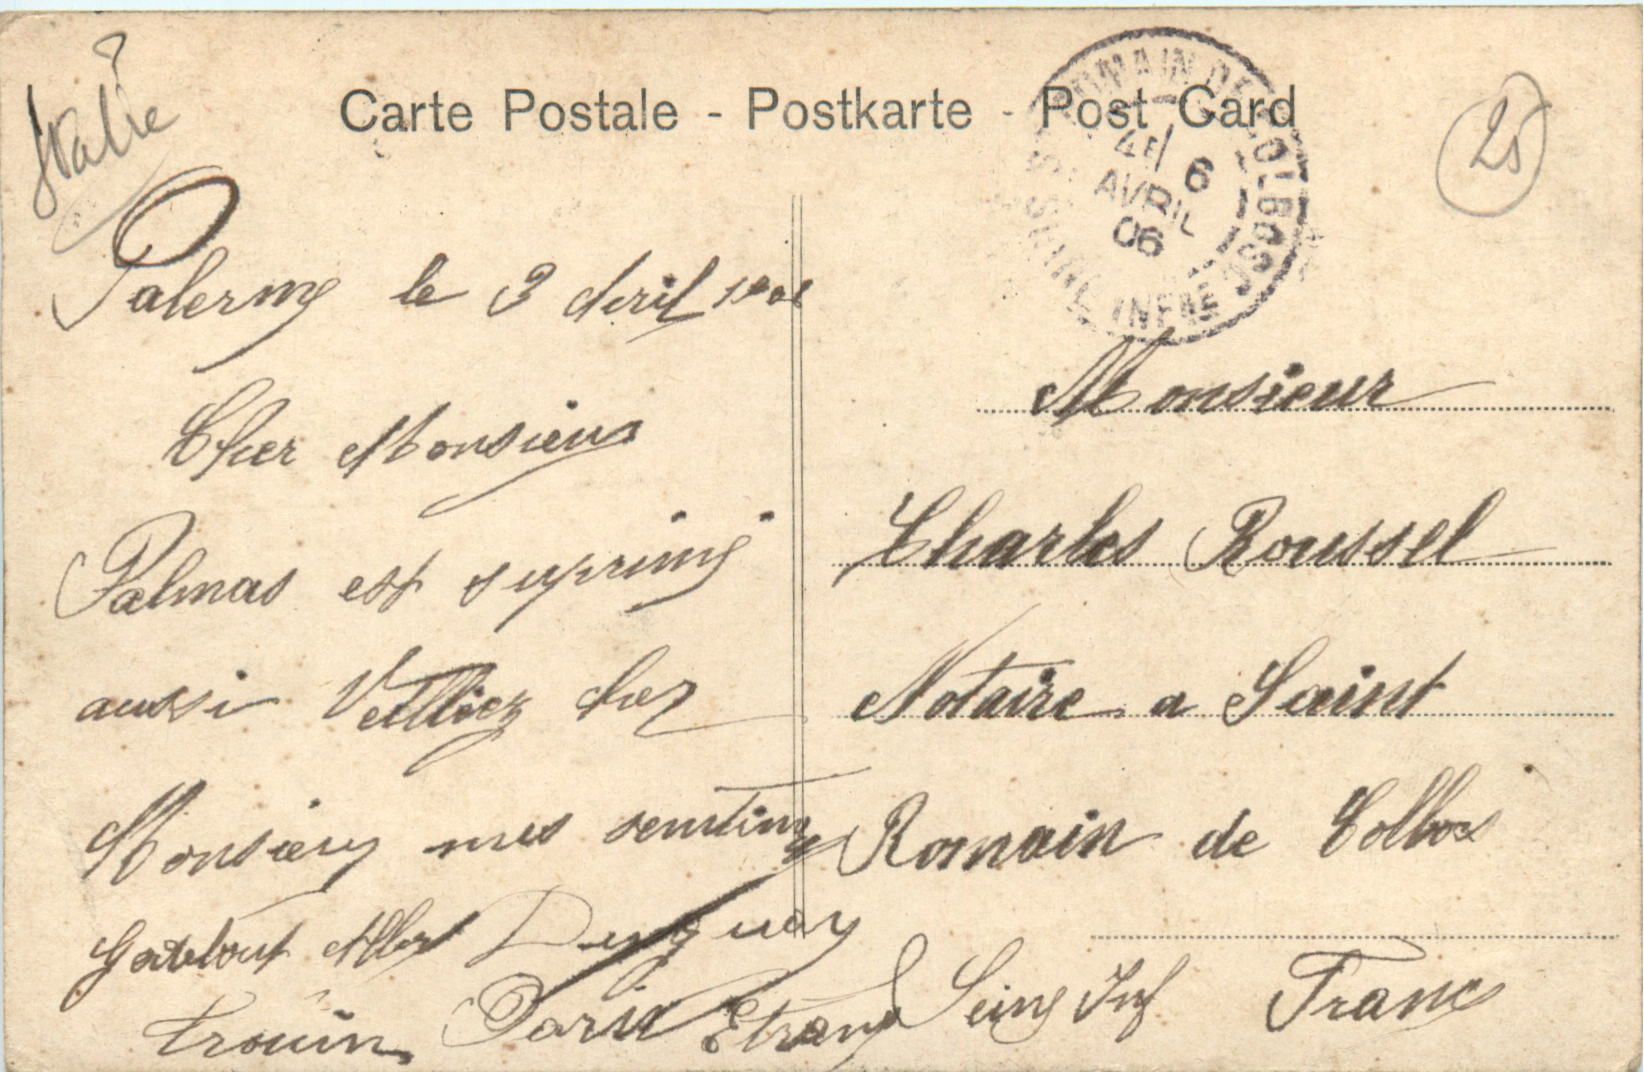 Italie
Carte Postale - Postkarte - Post Card
25
ROMAIN DE COLBOSC
4E/ 6
AVRIL
06
SEINE INFRE
Palerme le 3 Avril
Cher Monsieur
Palmas est suprimé
aussi Veuilliez cher
Monsieur mes sentim
Gatebout Albert Duguay
trouin Paris Etrang
Monsieur
Charles Roussel
Notaire a Saint
Romain de Colbos
Seine Inf Franc